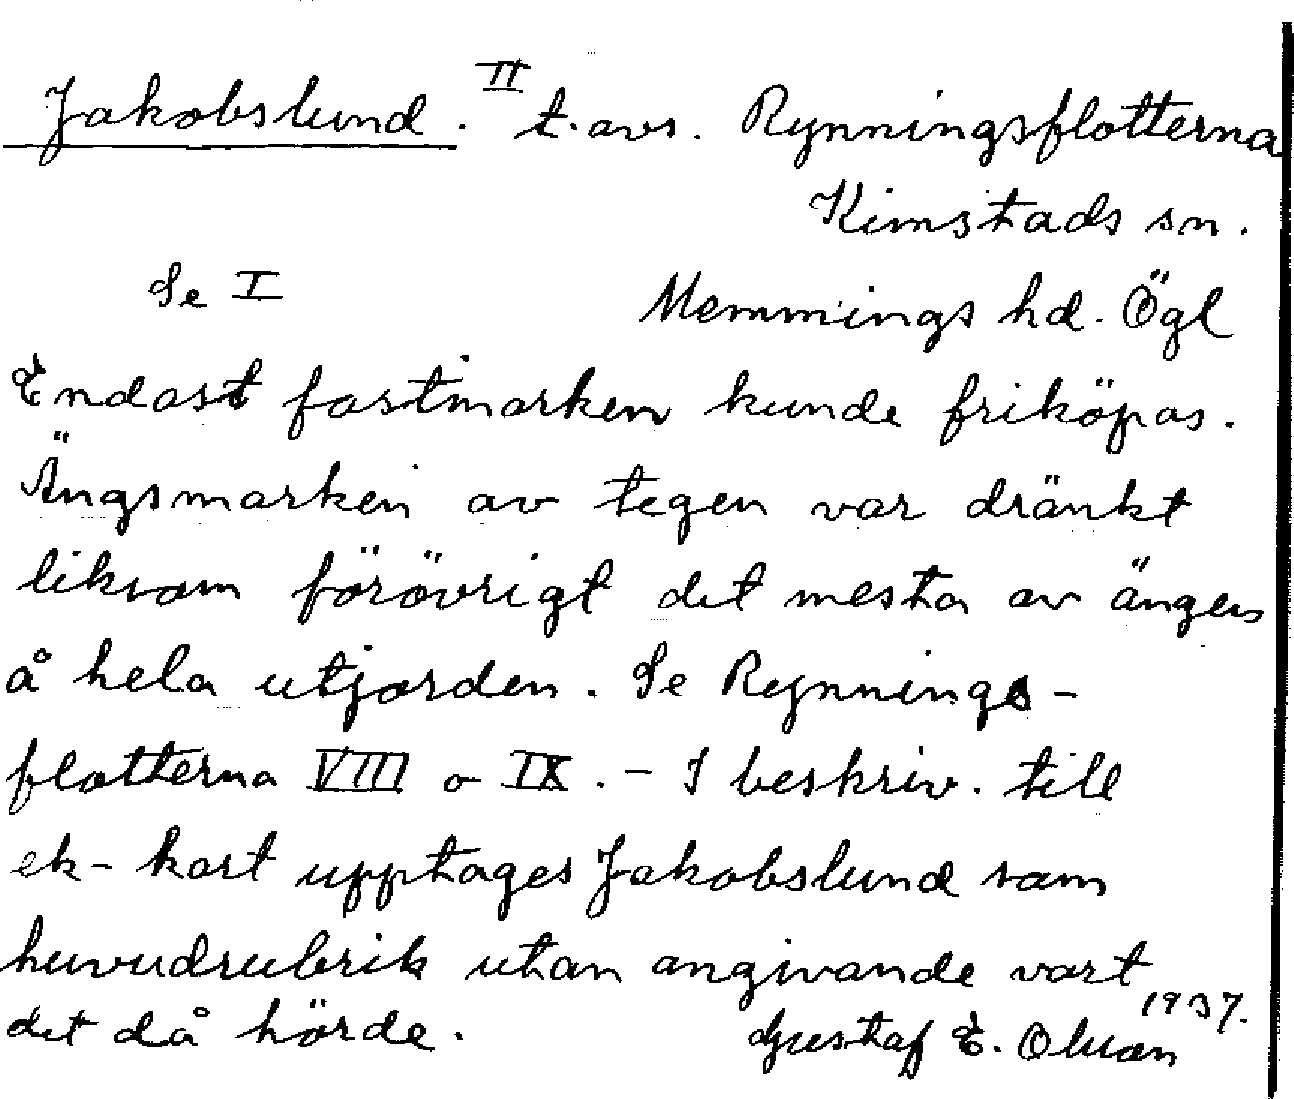 Jakobslund. II t. avs. Rynningsflotterna
Kimstads sn.
Se I Memmings hd. Ögl
Endast fastmarken kunde friköpas.
Ängsmarken av tegen var dränkt
liksom förövrigt det mesta av ängen
å hela utjorden. Se Rynnings-
flotterna VIII o IX. - I beskriv. till
ek-kart upptages Jakobslund som
huvudrubrik utan angivande vart
det då hörde. Gustaf E. Olson 1937.